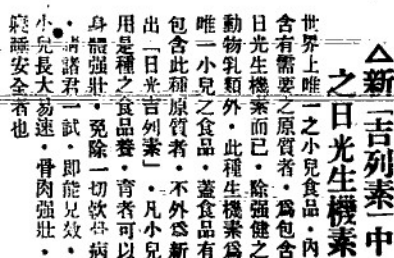 △新「吉列素」中
之日光生機素
世界上唯一之小兒食品・內
含有需要之原質者・爲包含
日光生機素而已・除强健之
動物乳類外・此種生機素爲
唯一小兒之食品・蓋食品有
包含此種原質者・不外爲新
出「日光吉列素」・凡小兒
用是種之食品養・育者可以
身體强壯・免除一切軟骨病
・請諸君一試・卽能見效・
小兒長大易速・骨肉强壯・
寢睡安全者也